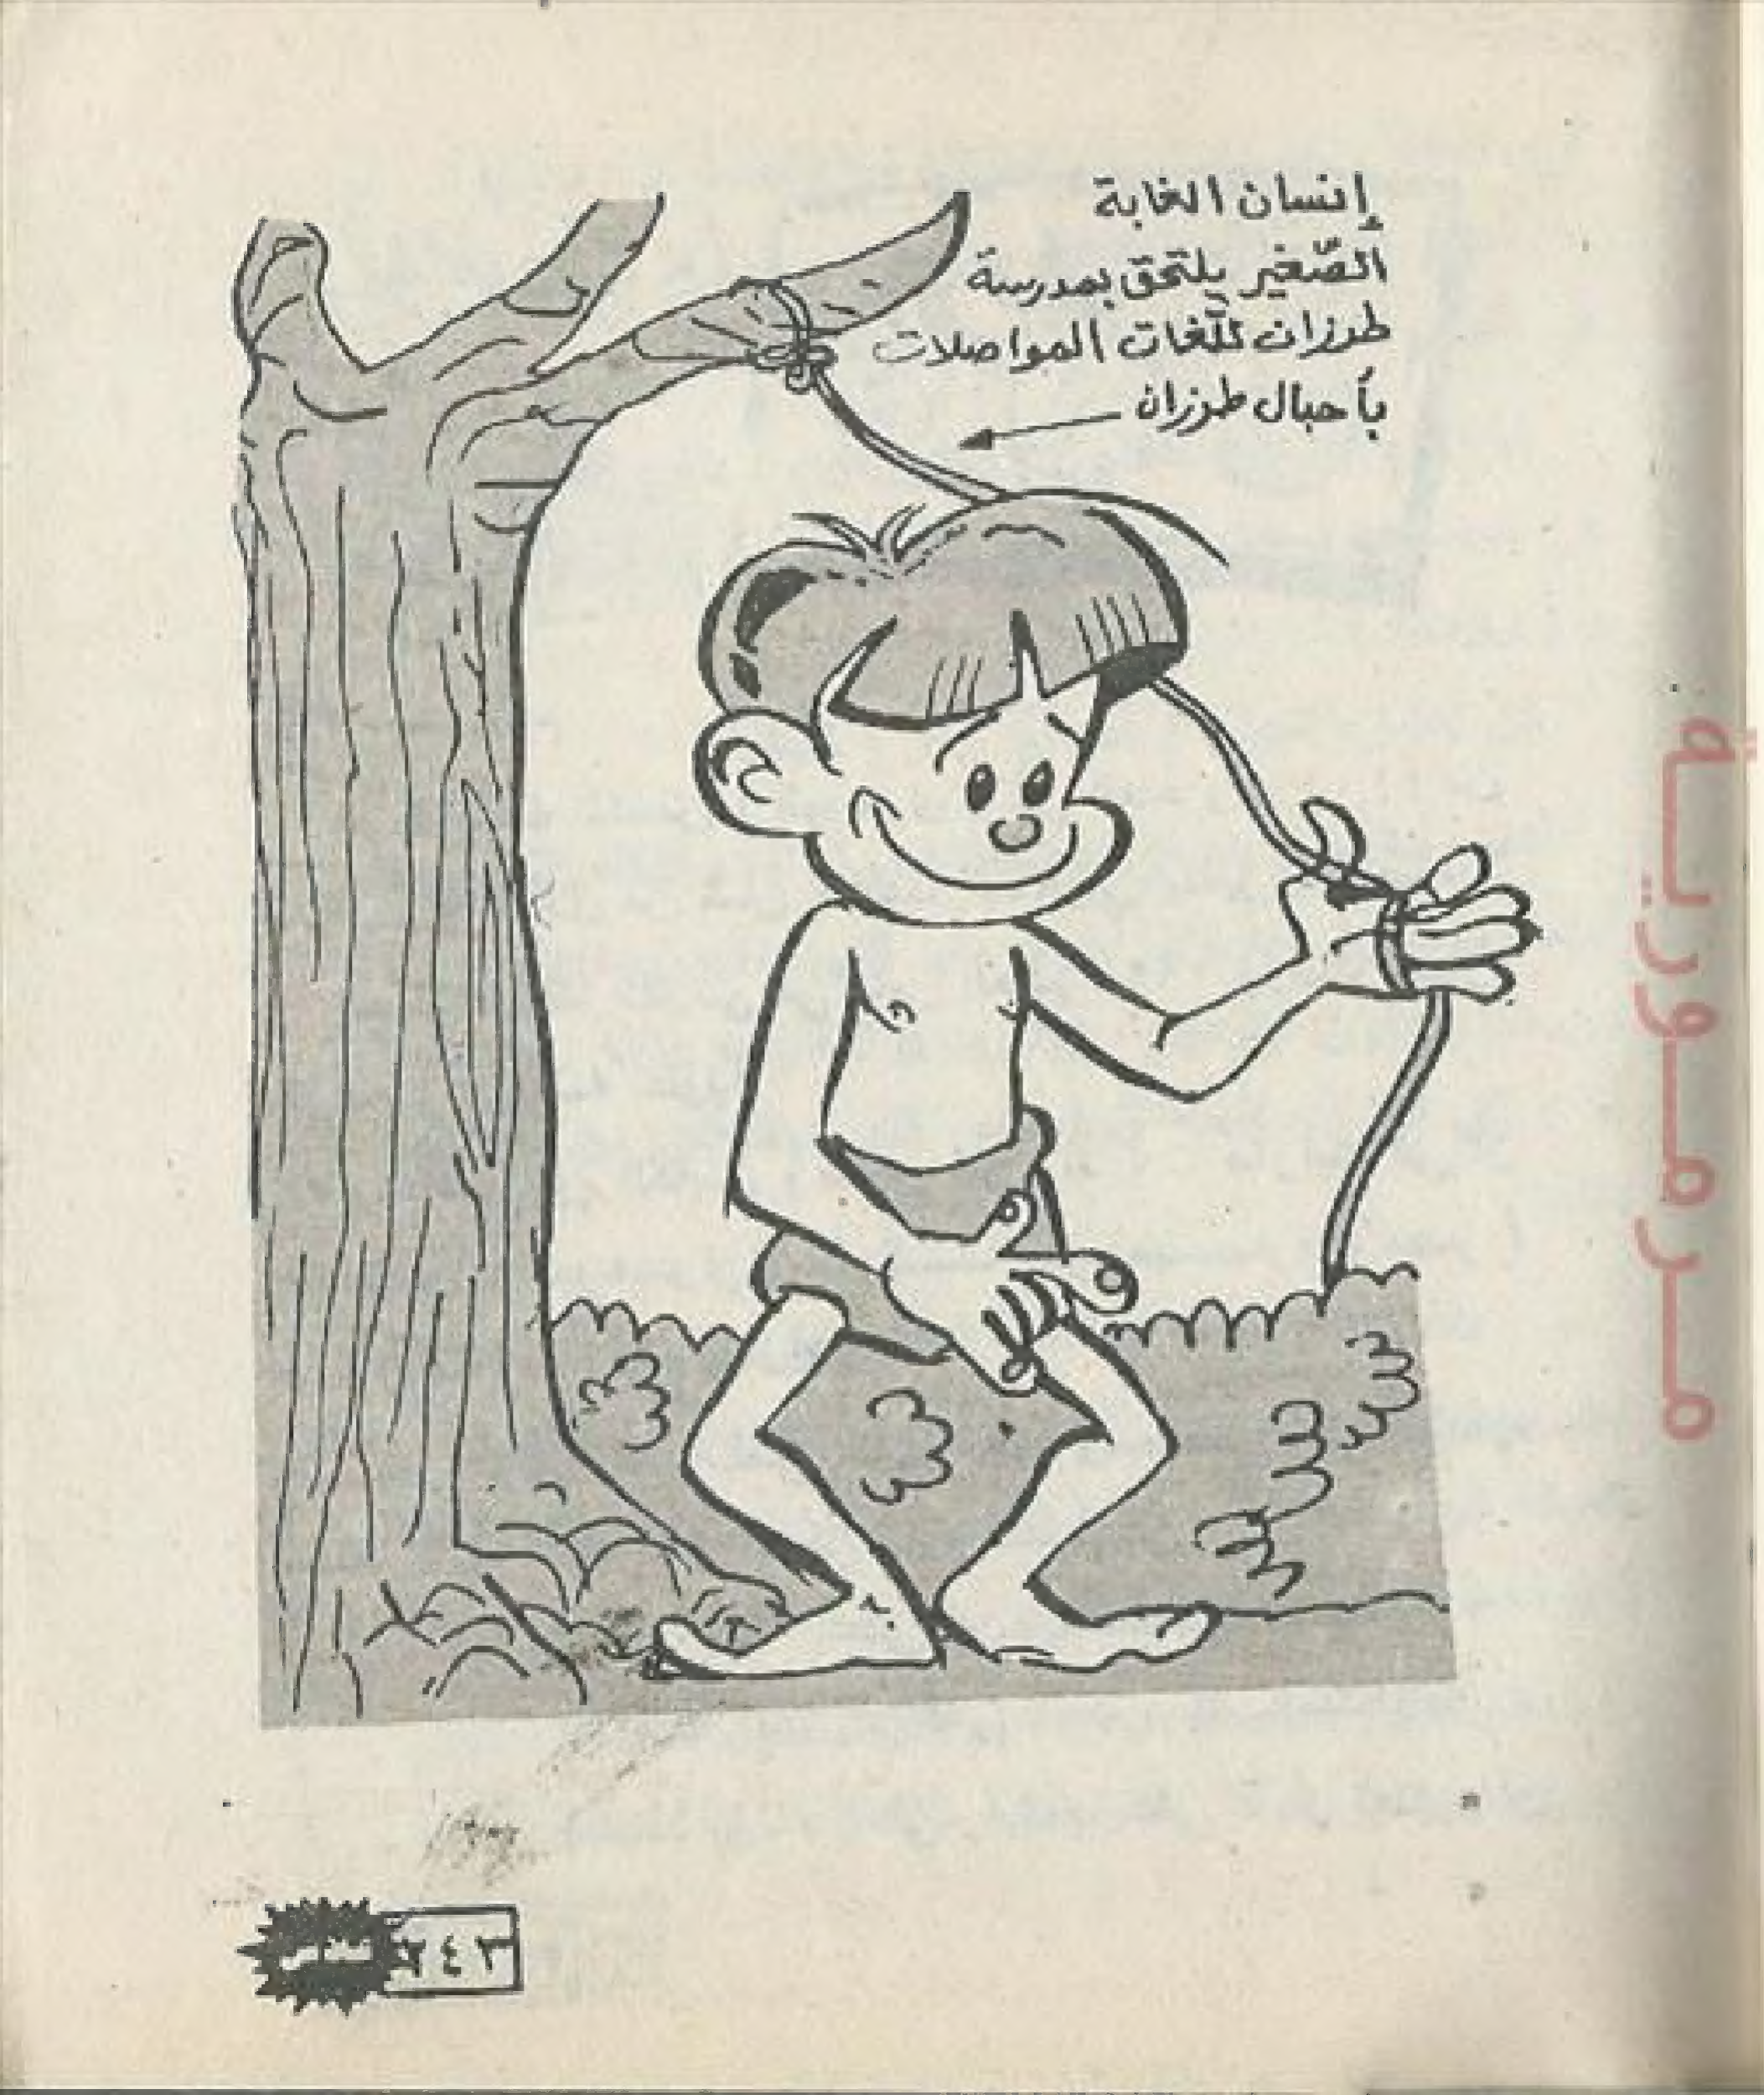 إنسان الغابة
الصّغير يلتحق بمدرسة
طرزان للّغات المواصلات
بأحبال طرزان
مـرمـوريـة
٢٤٣